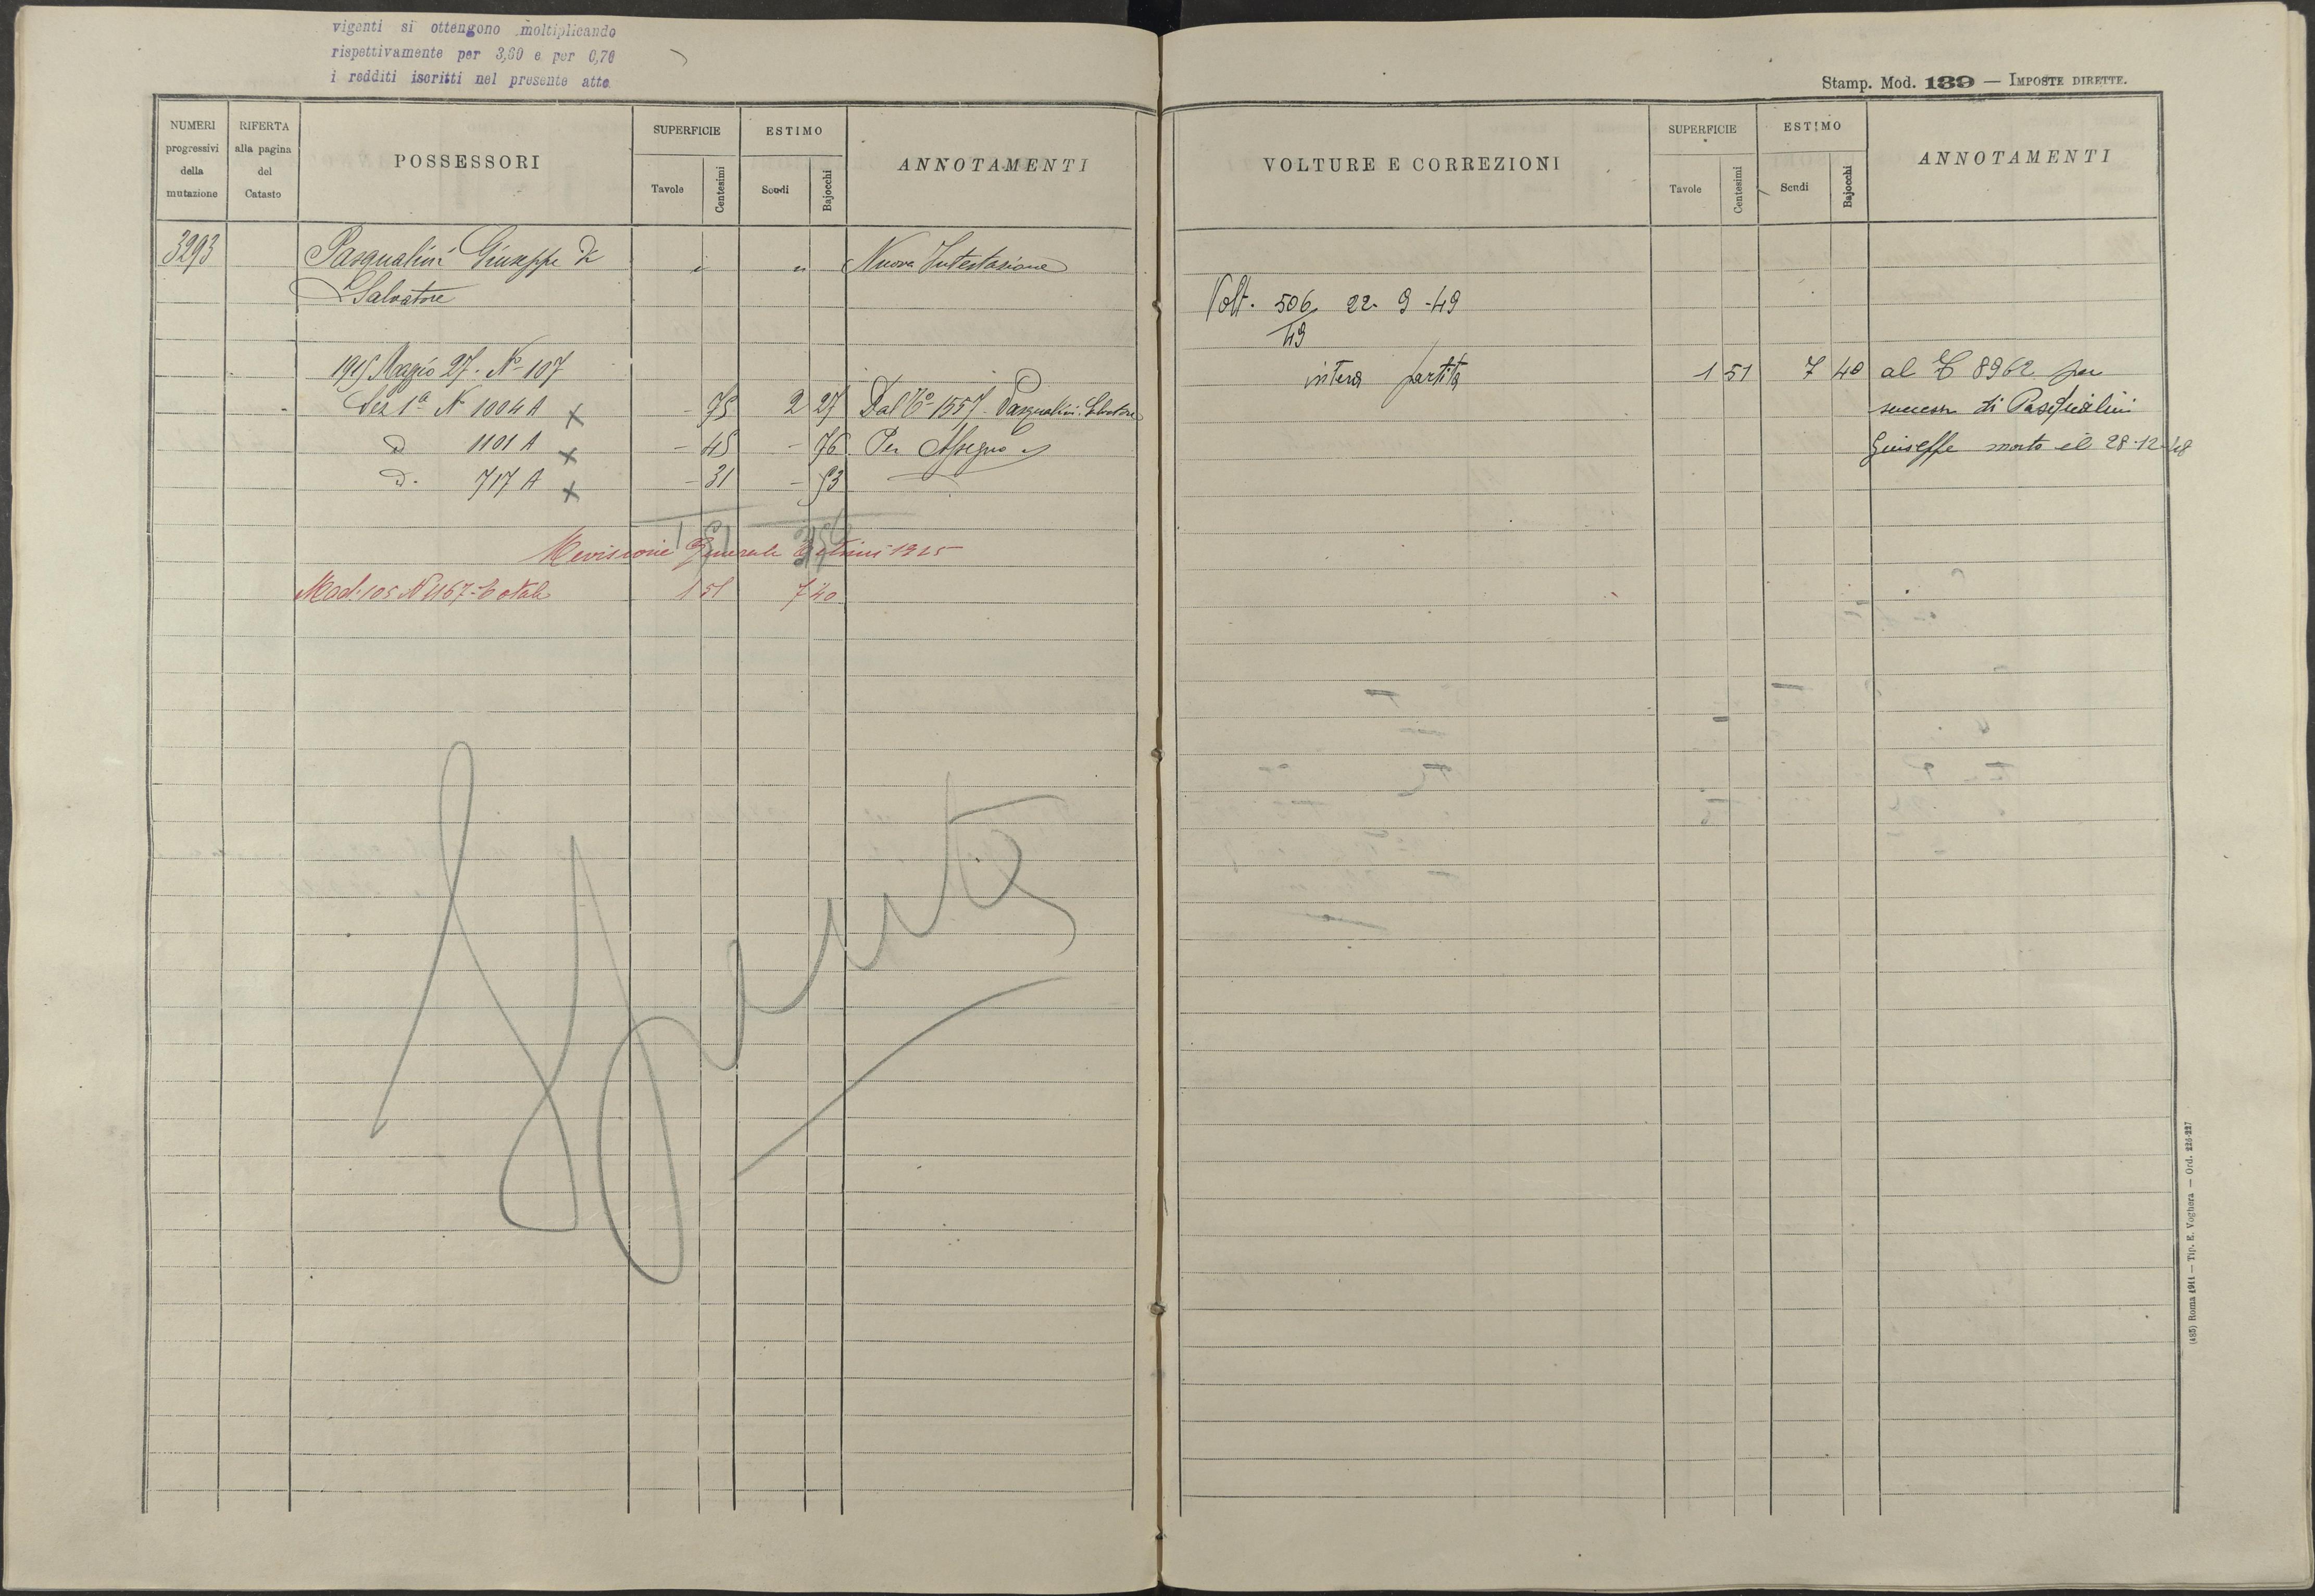 vigenti si ottengono moltiplicando
rispettivamente per 3,60 e per 0,70
i redditi iscritti nel presente atto
NUMERI progressivi della mutazione
RIFERTA alla pagina del Catasto
POSSESSORI
SUPERFICIE
Tavole
Centesimi
ESTIMO
Scudi
Bajocchi
ANNOTAMENTI
3293 Pasqualini Giuseppe di " " Nuova Intestazione
Salvatore
1915 Maggio 27. N° 107
Sez 1a N 1004 A x - 75 2 27 Dal T° 1557. Pasqualini Salvatore
D 1101 A x - 45 - 76 Per Assegno
D. 717 A x - 31 - 53
1 51 3 56
Revisione Generale Estimi 1925
Mod. 105 N 1167 - Totale 1 51 7 40
Stamp. Mod. 139 — IMPOSTE DIRETTE.
VOLTURE E CORREZIONI
SUPERFICIE
Tavole
Centesimi
ESTIMO
Scudi
Bajocchi
ANNOTAMENTI
Volt. 506 22-9-49
49
intera partita 1 51 7 40 al T 8962 per
success di Pasqualini
Giuseppe morto il 28-12-48
(485) Roma 1911 — Tip. E. Voghera — Ord. 226-227